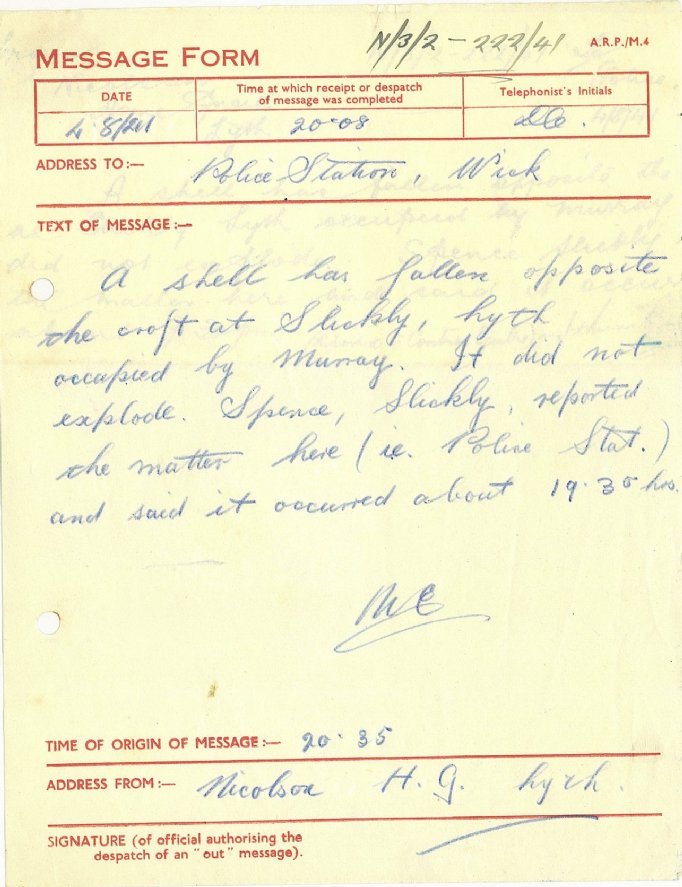 N/3/2 - 222/41
A.R.P./M.4
MESSAGE FORM
DATE
Time at which receipt or despatch
of message was completed
Telephonist's Initials
4.8/41
20.08
ADDRESS TO:—
Police Station, Wick
TEXT OF MESSAGE:—
A shell has fallen opposite
the croft at Slickly, Lyth
occupied by Murray. It did not
explode. Spence, Slickly, reported
the matter here (ie. Police Stat.)
and said it occurred about 19.30 hrs.
TIME OF ORIGIN OF MESSAGE:— 20.35
ADDRESS FROM:— Nicolson H. G. Lyth.
SIGNATURE (of official authorising the
despatch of an "out" message).